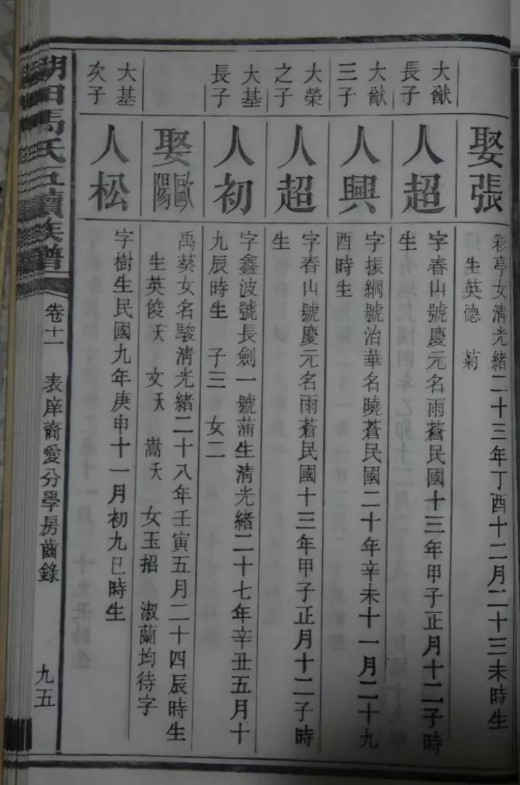 娶張
彩亭女清光緒二十三年丁酉十二月二十三未時生
生英德 菊
大猷
長子
人超
字春山號慶元名雨蒼民國十三年甲子正月十二子時
生
大猷
三子
人興
字振綱號治華名曉蒼民國二十年辛未十一月二十九
酉時生
大榮
之子
人超
字春山號慶元名雨蒼民國十三年甲子正月十二子時
生
大基
長子
人初
字鑫波號長劍一號蒲生清光緒二十七年辛丑五月十
九辰時生 子三 女二
娶歐陽
禹葵女名駿清光緒二十八年壬寅五月二十四辰時生
生英俊夭 文夭 嵩夭 女玉招 淑蘭均待字
大基
次子
人松
字樹生民國九年庚申十一月初九巳時生
湖田馬氏五續族譜 卷十一 表庠裔愛分學房齒錄 九五